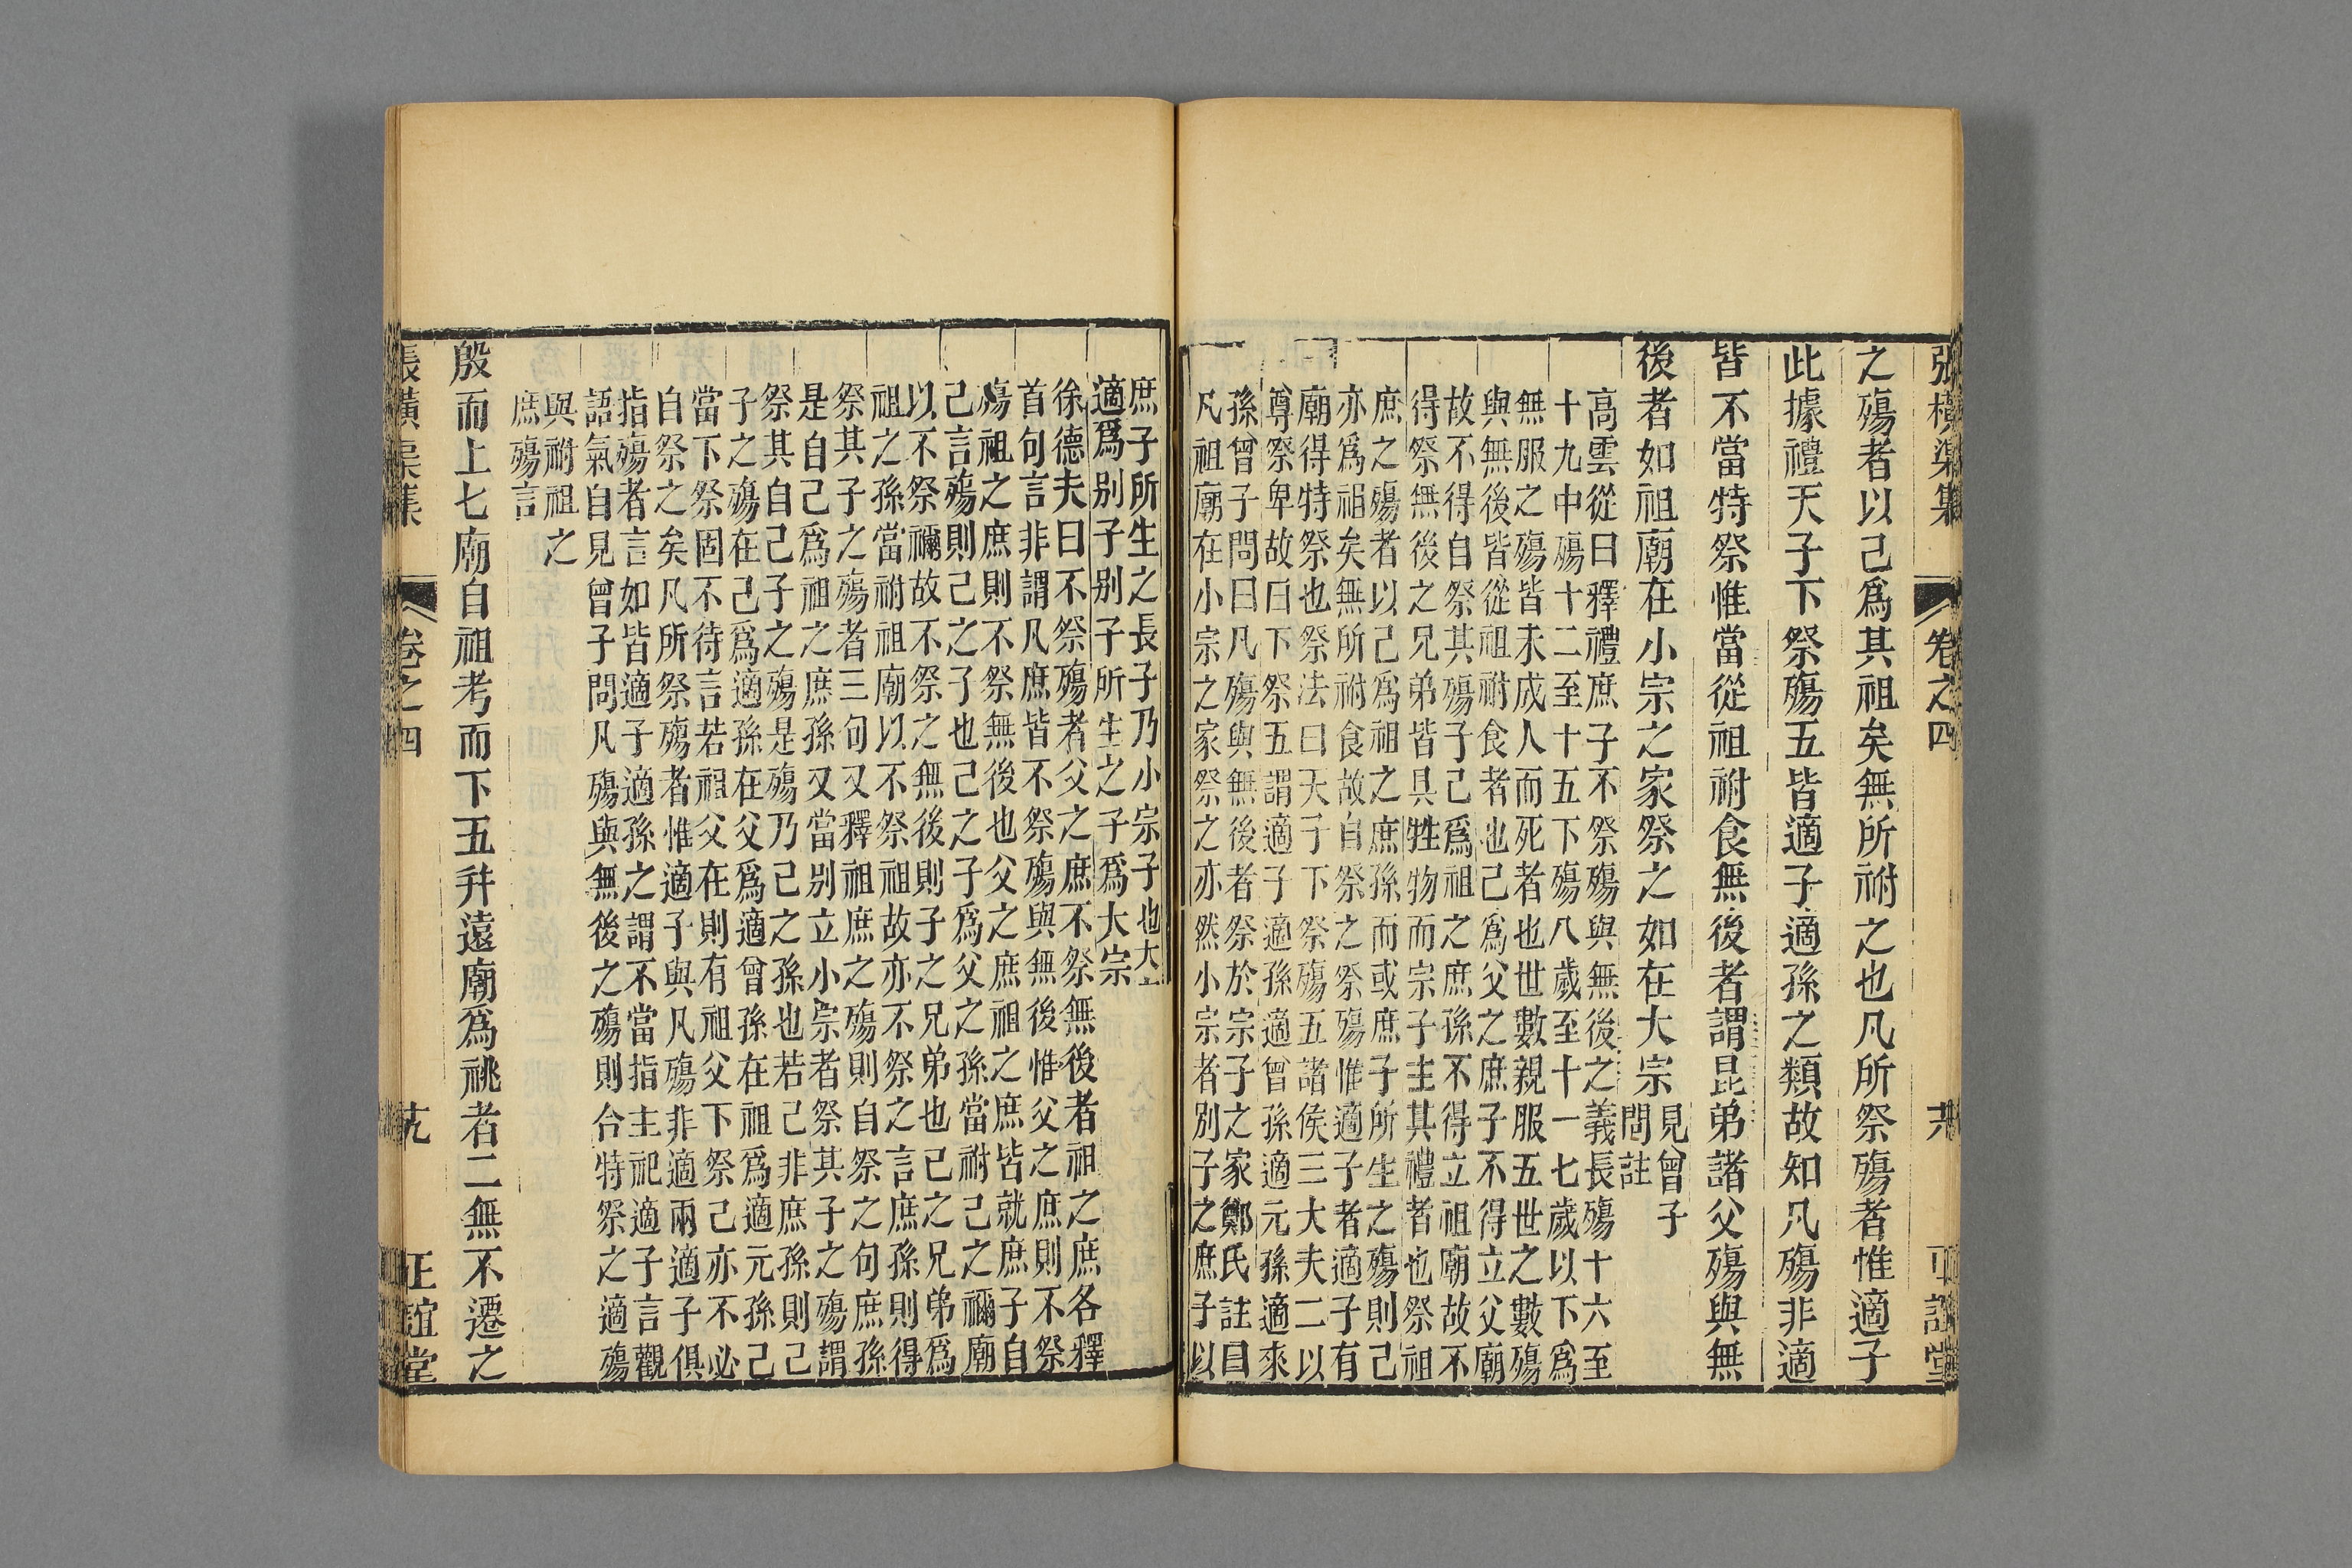 張橫渠集 卷之四 正誼堂
之殤者以己爲其祖矣無所祔之也凡所祭殤者惟適子
此據禮天子下祭殤五皆適子適孫之類故知凡殤非適
皆不當特祭惟當從祖祔食無後者謂昆弟諸父殤與無
後者如祖廟在小宗之家祭之如在大宗見曾子
問註
高雲從曰釋禮庶子不祭殤與無後之義長殤十六至
十九中殤十二至十五下殤八歲至十一七歲以下爲
無服之殤皆未成人而死者也世數親服五世之數殤
與無後皆從祖祔食者也己爲父之庶子不得立父廟
故不得自祭其殤子己爲祖之庶孫不得立祖廟故不
得祭無後之兄弟皆具牲物而宗子主其禮者也祭祖
庶之殤者以己爲祖之庶孫而或庶子所生之殤則己
亦爲祖矣無所祔食故自祭之祭殤惟適子者適子有
廟得特祭也祭法曰天子下祭殤五諸侯三大夫二以
尊祭卑故曰下祭五謂適子適孫適曾孫適元孫適來
孫曾子問曰凡殤與無後者祭於宗子之家鄭氏註曰
凡祖廟在小宗之家祭之亦然小宗者別子之庶子以
庶子所生之長子乃小宗子也大
適爲別子別子所生之子爲大宗
徐德夫曰不祭殤者父之庶不祭無後者祖之庶各釋
首句言非謂凡庶皆不祭殤與無後惟父之庶則不祭
殤祖之庶則不祭無後也父之庶祖之庶皆就庶子自
己言殤則己之子也己之子爲父之孫當祔己之禰廟
以不祭禰故不祭之無後則子之兄弟也己之兄弟爲
祖之孫當祔祖廟以不祭祖故亦不祭之言庶孫則得
祭其子之殤者三句又釋祖庶之殤則自祭之句庶孫
是自己爲祖之庶孫又當別立小宗者祭其子之殤謂
祭其自己子之殤是殤乃己之孫也若己非庶孫則己
子之殤在己爲適孫在父爲適曾孫在祖爲適元孫己
當下祭固不待言若祖父在則有祖父下祭己亦不必
自祭之矣凡所祭殤者惟適子與凡殤非適兩適子俱
指殤者言如皆適子適孫之謂不當指主祀適子言觀
語氣自見曾子問凡殤與無後之殤則合特祭之適殤
與祔祖之
庶殤言
殷而上七廟自祖考而下五幷遠廟爲祧者二無不遷之
張橫渠集 卷之四 正誼堂